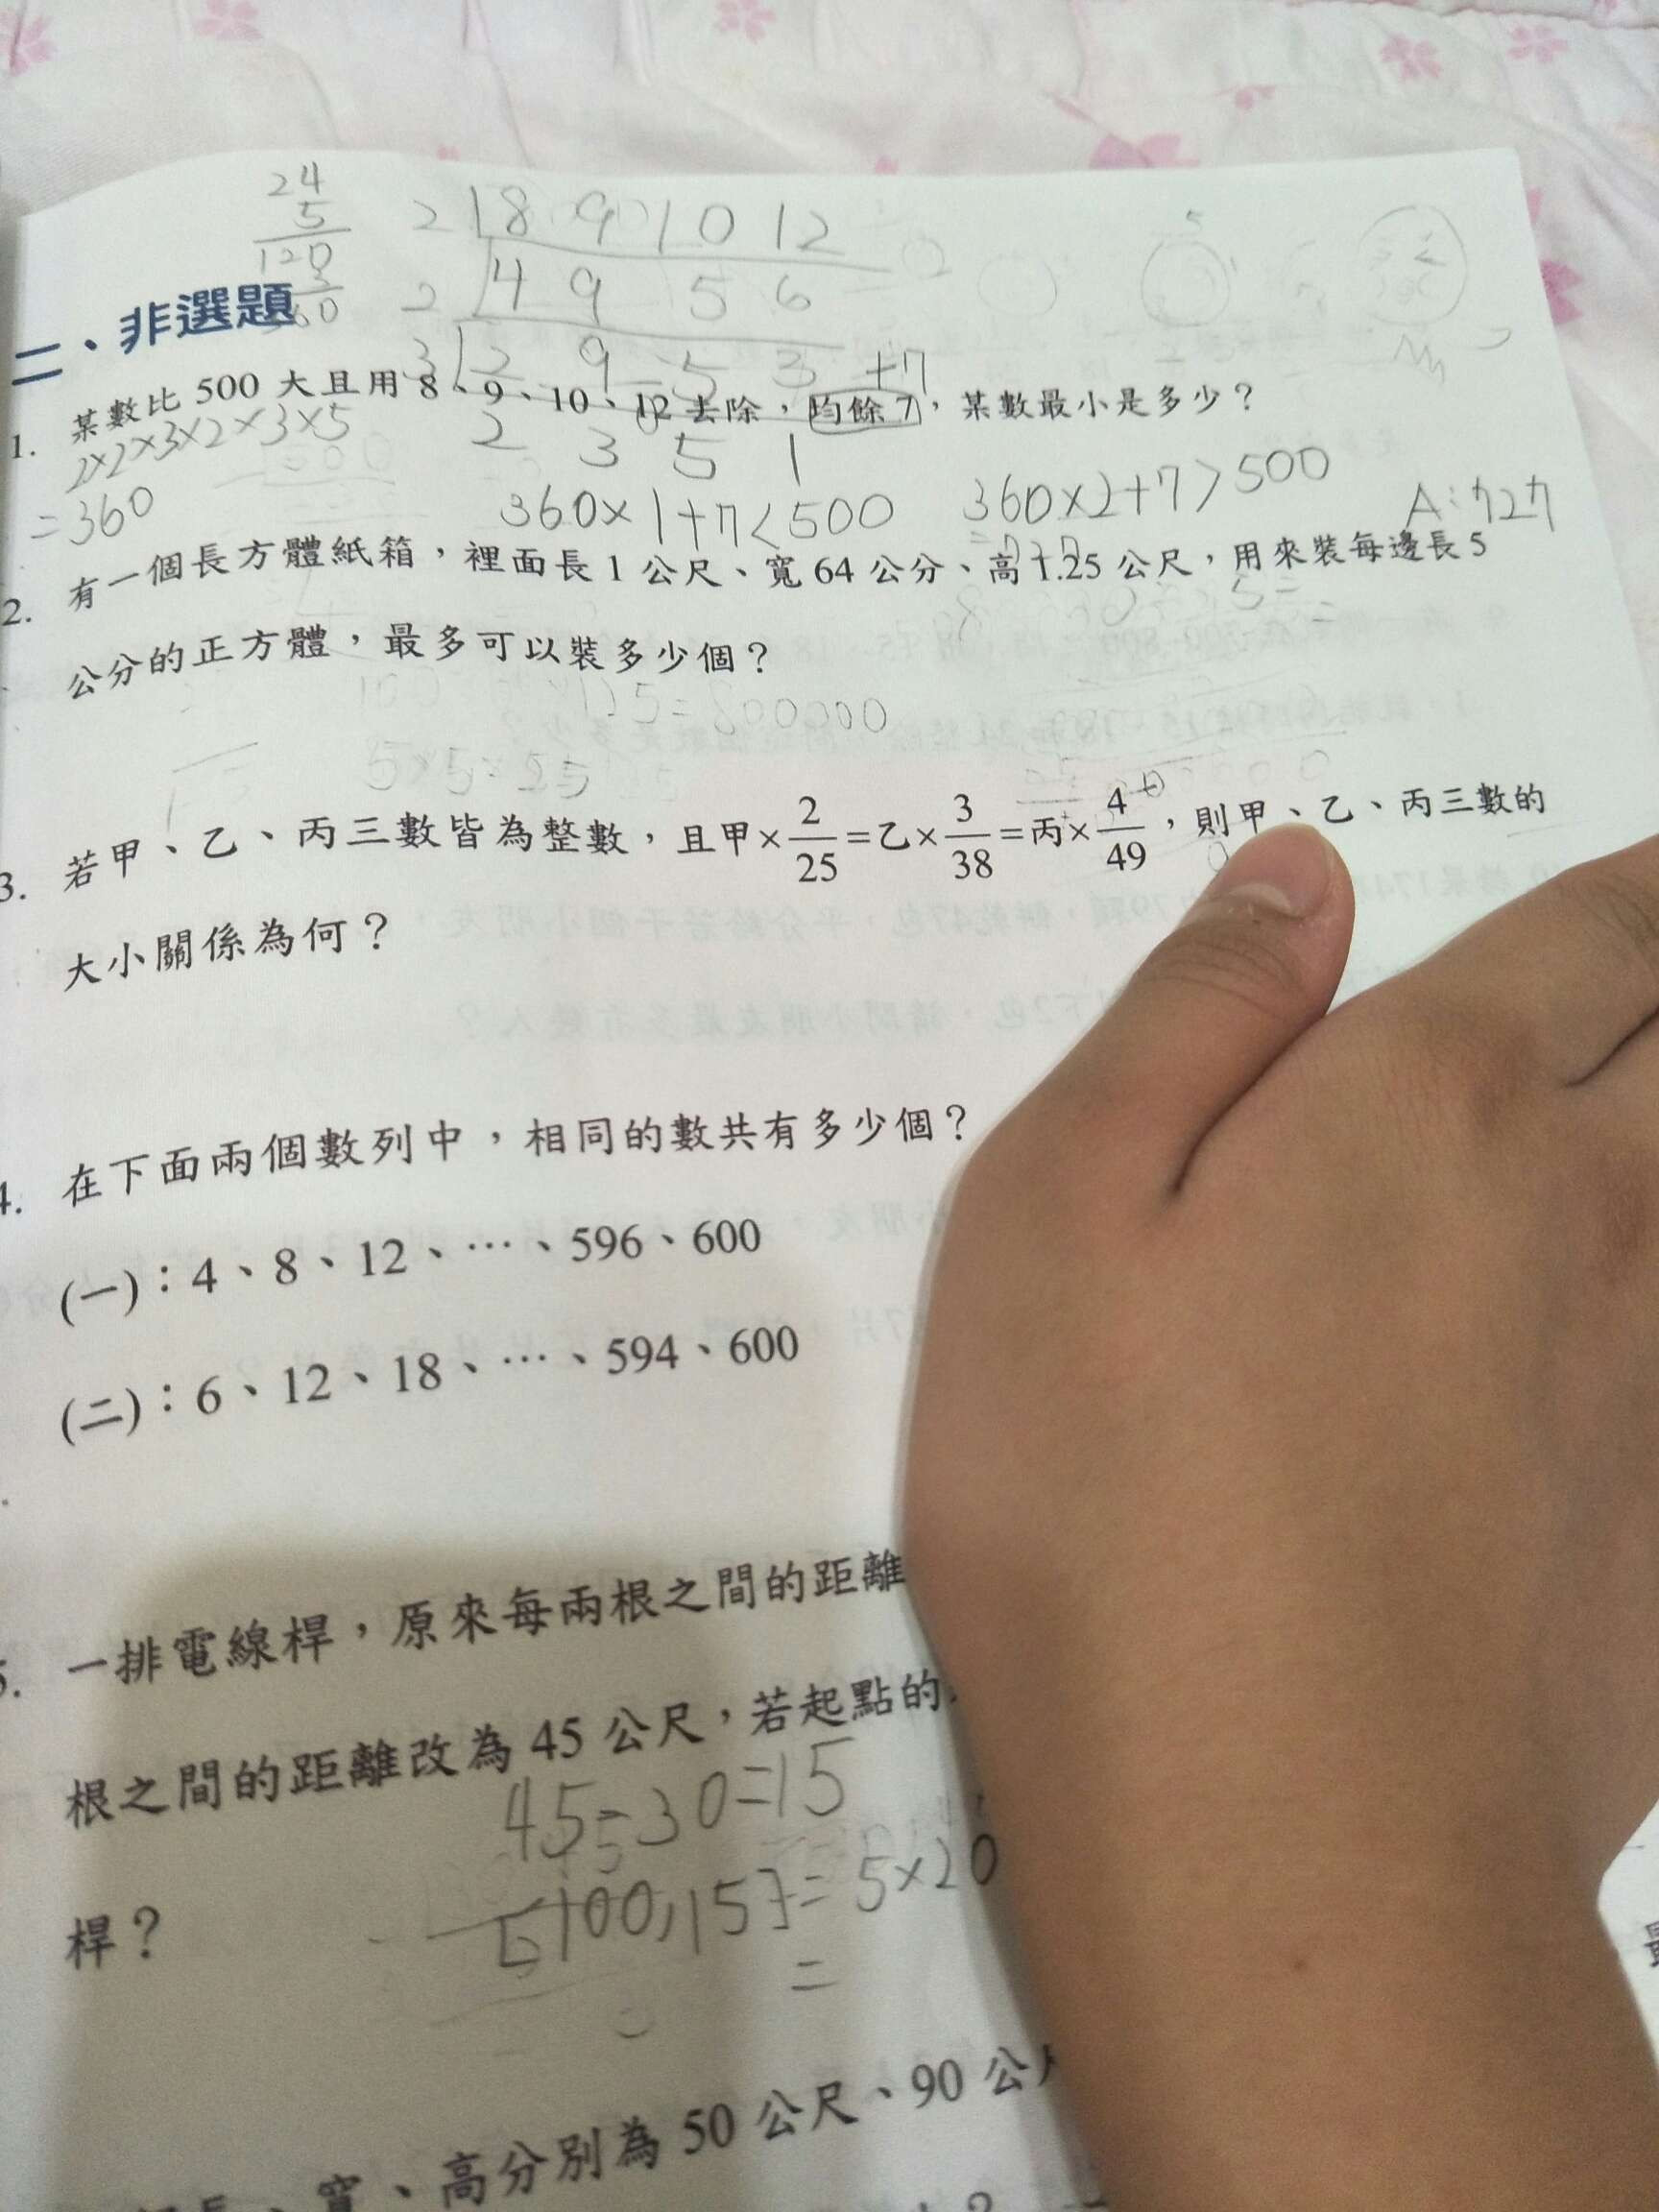 24
5
120
3
360
2 8 9 10 12
2 4 9 5 6
3 2 9 5 3 +7
2 3 5 1
二、非選題
1. 某數比 500 大且用 8、9、10、12 去除，均餘 7，某數最小是多少？
2×2×3×2×3×5
=360
360×1+7<500 360×2+7>500 A:727
=727
2. 有一個長方體紙箱，裡面長 1 公尺、寬 64 公分、高 1.25 公尺，用來裝每邊長 5
公分的正方體，最多可以裝多少個？
125=800000
5×5=25
3. 若甲、乙、丙三數皆為整數，且甲×2/25=乙×3/38=丙×4/49，則甲、乙、丙三數的
大小關係為何？
4. 在下面兩個數列中，相同的數共有多少個？
(一)：4、8、12、…、596、600
(二)：6、12、18、…、594、600
5. 一排電線桿，原來每兩根之間的距離
根之間的距離改為 45 公尺，若起點的
桿？
45-30=15
[100,15]=5×20
=
寬、高分別為 50 公尺、90 公